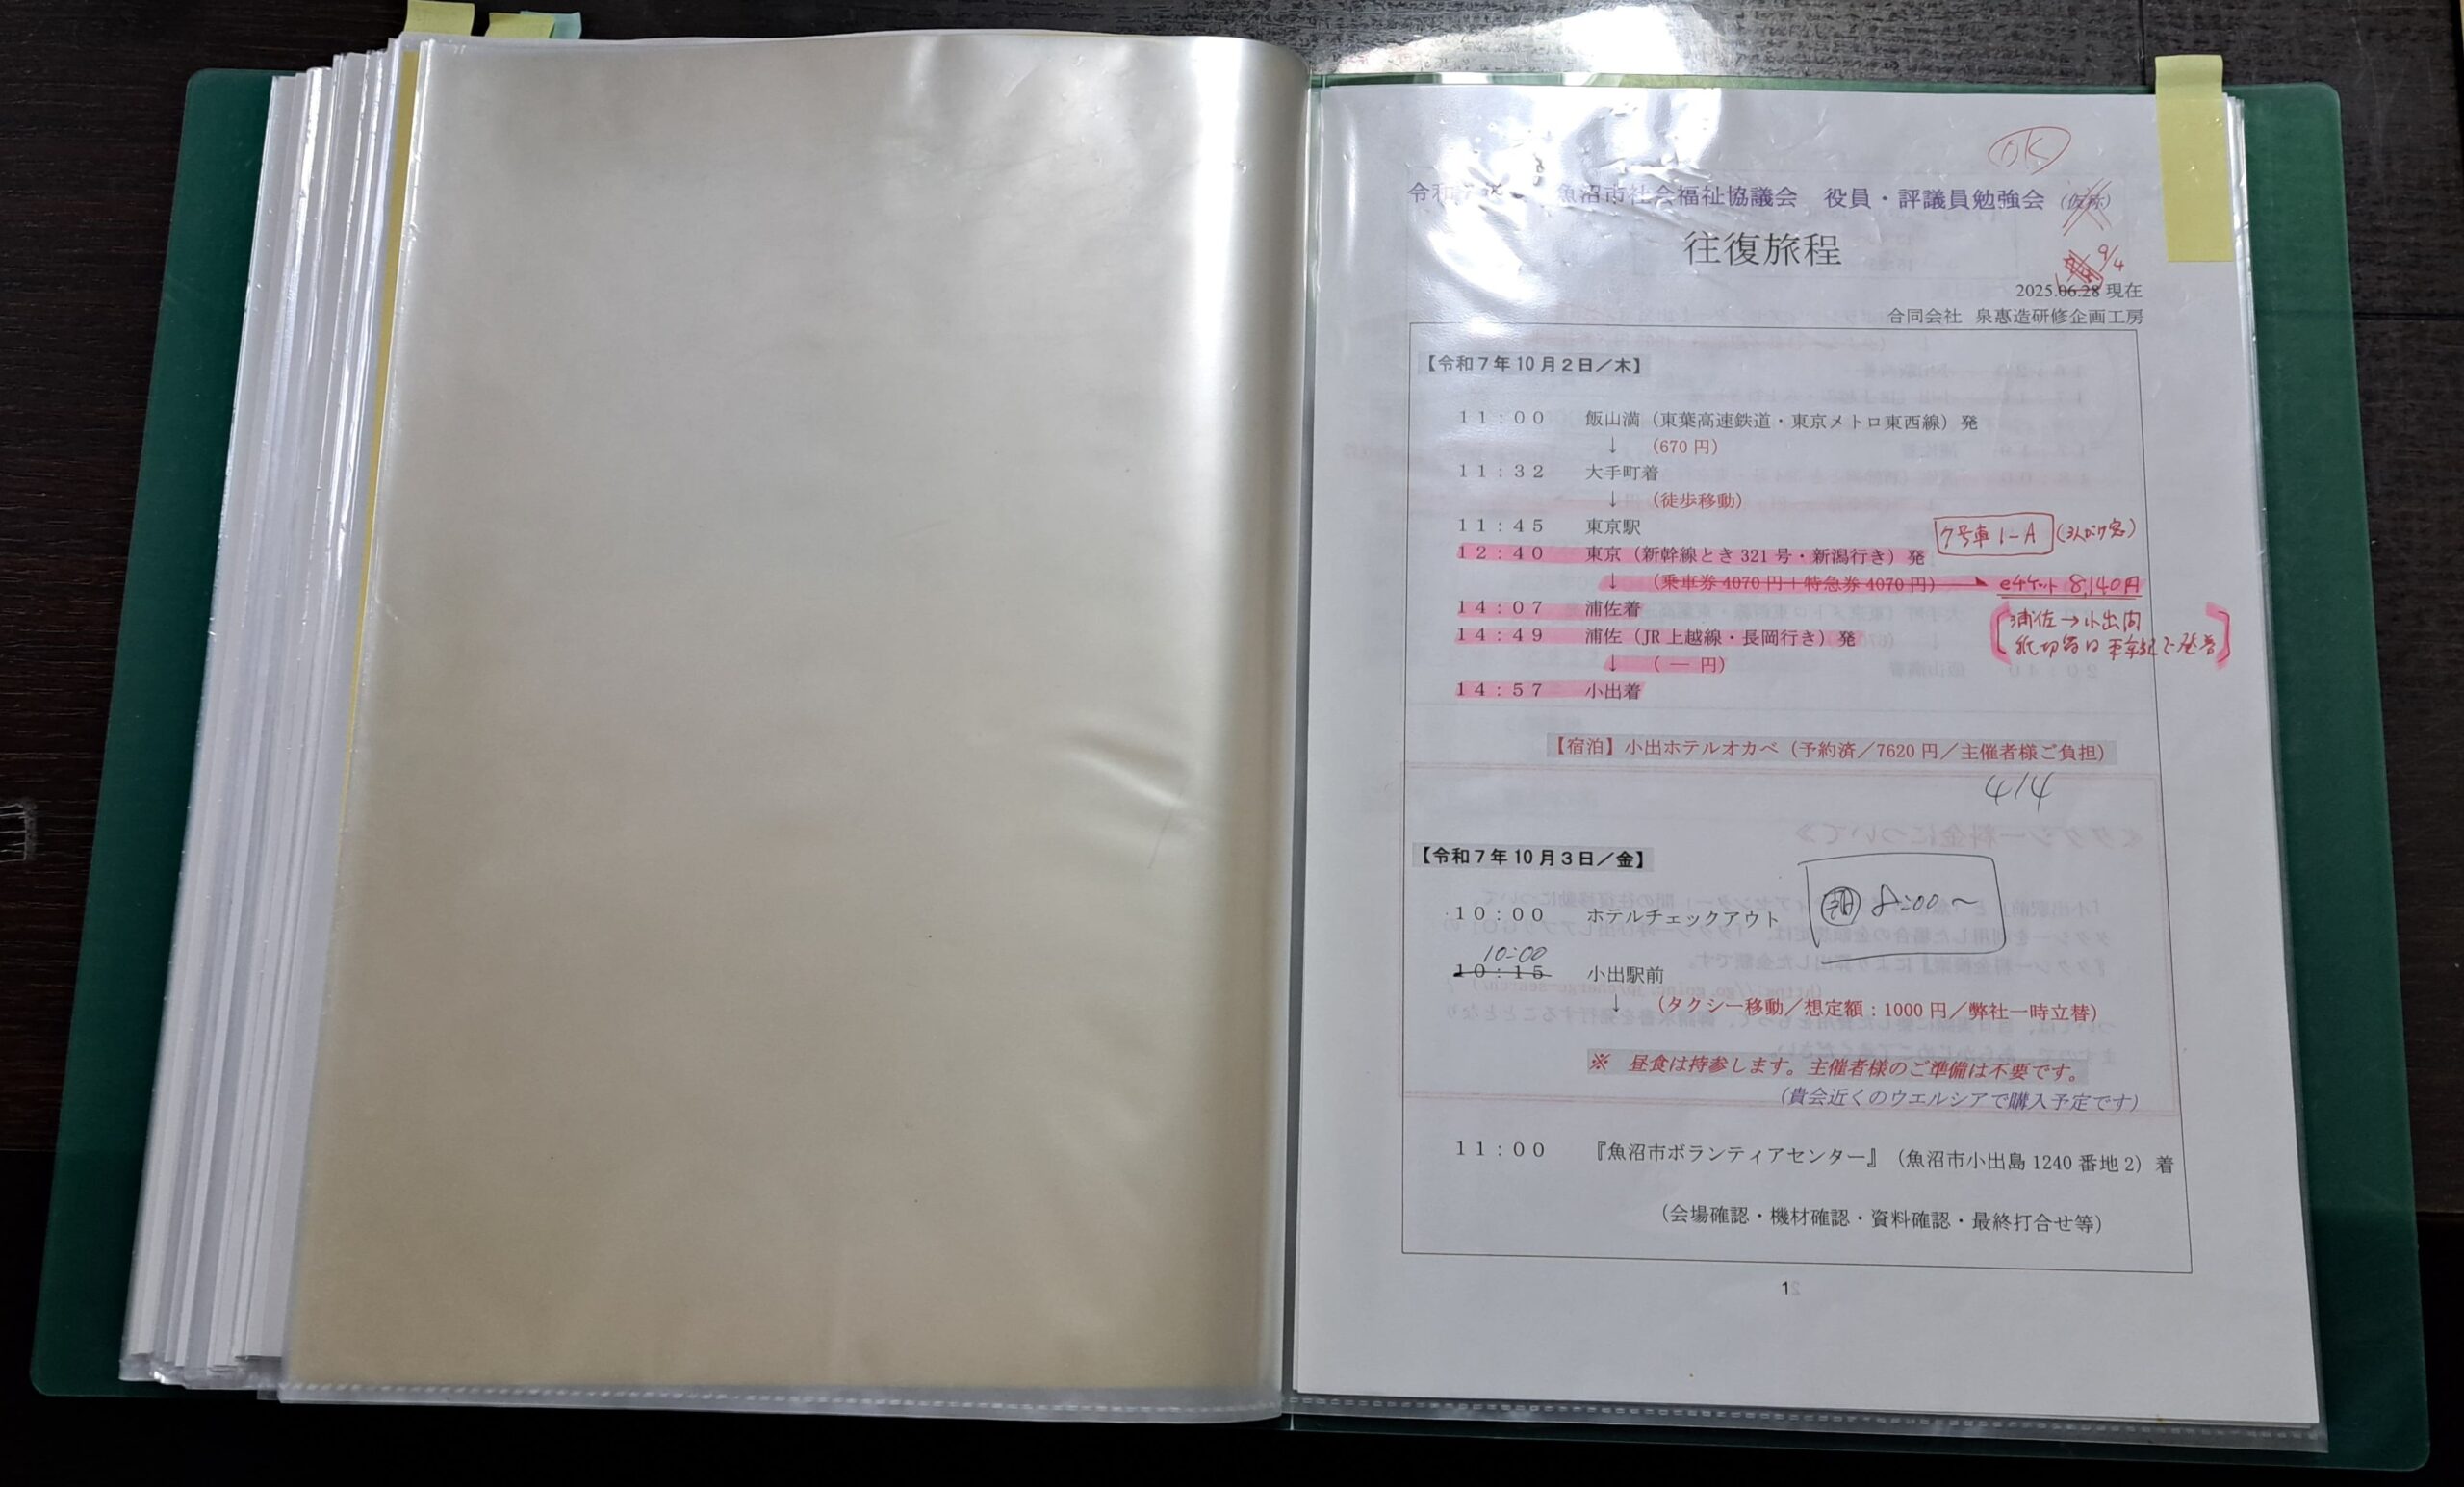 OK
令和7 魚沼市社会福祉協議会　役員・評議員勉強会（仮称）
往復旅程
9/4
2025.06.28 現在
合同会社　泉惠造研修企画工房
【令和７年 10 月２日／木】
１１：００　飯山満（東葉高速鉄道・東京メトロ東西線）発
↓　（670 円）
１１：３２　大手町着
↓　（徒歩移動）
１１：４５　東京駅
7号車 1-A
１２：４０　東京（新幹線とき 321 号・新潟行き）発
↓　（乗車券 4070 円＋特急券 4070 円） eチケット 8,140円
１４：０７　浦佐着
浦佐→小出間
１４：４９　浦佐（JR 上越線・長岡行き）発
↓　（ ― 円）
１４：５７　小出着
【宿泊】小出ホテルオカベ（予約済／7620 円／主催者様ご負担）
414
【令和７年 10 月３日／金】
8:00～
１０：００　ホテルチェックアウト
10:00
１０：１５　小出駅前
↓　（タクシー移動／想定額：1000 円／弊社一時立替）
※　昼食は持参します。主催者様のご準備は不要です。
（貴会近くのウエルシアで購入予定です）
１１：００　『魚沼市ボランティアセンター』（魚沼市小出島 1240 番地 2）着
（会場確認・機材確認・資料確認・最終打合せ等）
1